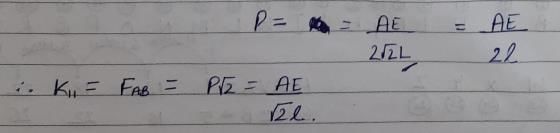 P = = AE / 2√2L = AE / 2l
∴ K₁₁ = F_AB = P√2 = AE / √2l.